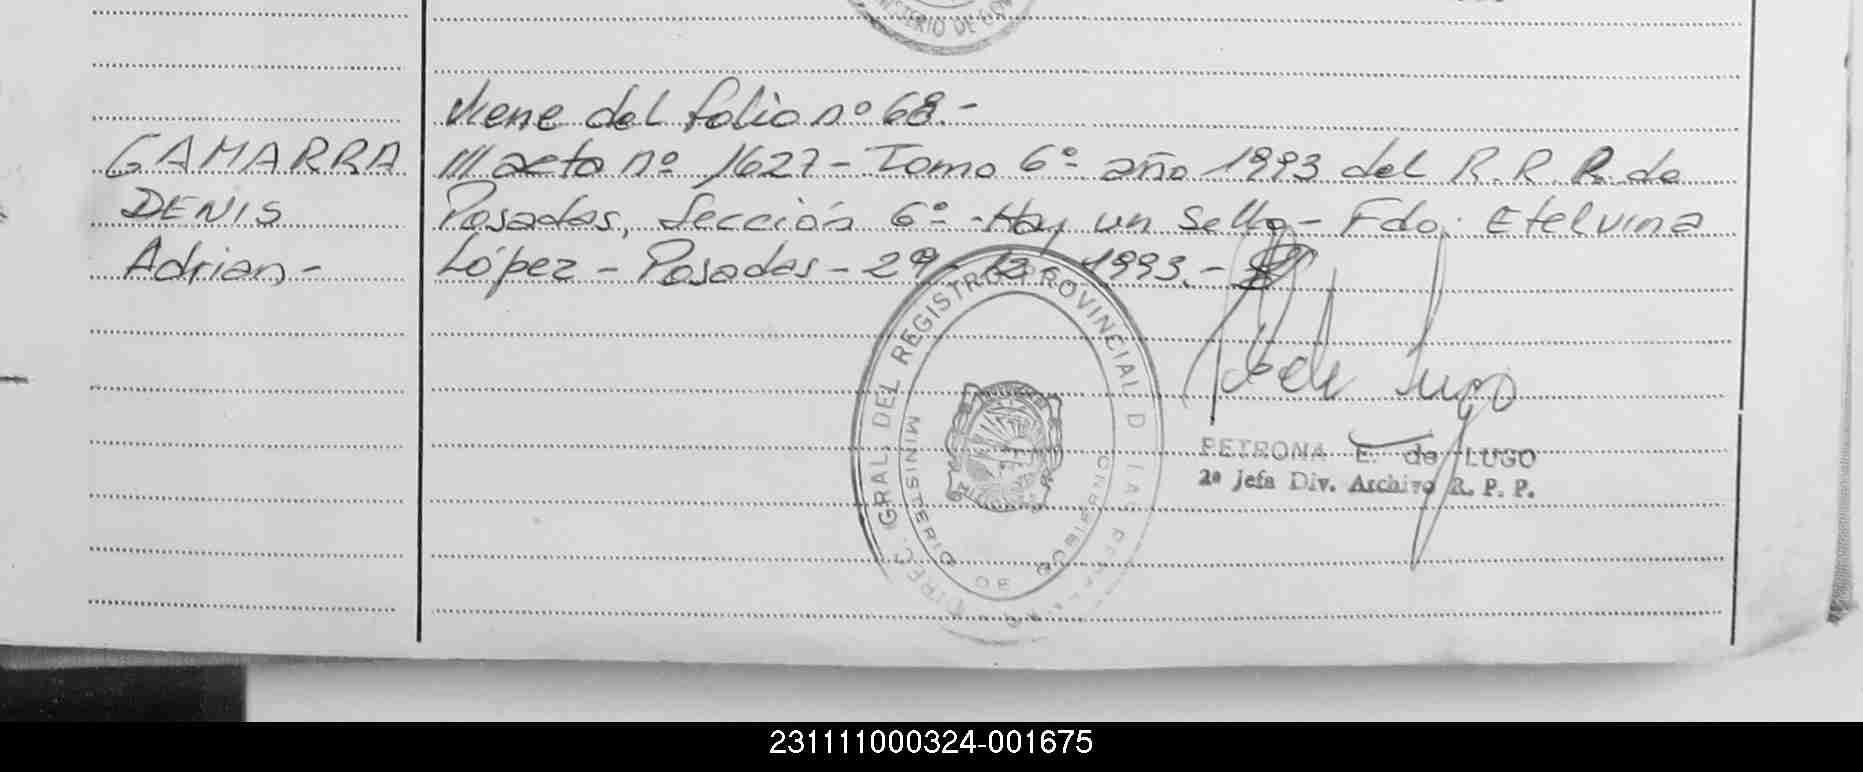 MINISTERIO DE GO
Viene del folio nº 68.-
GAMARRA
DENIS
Adrian.-
/// acta nº 1627 - Tomo 6º año 1993 del R.P.P. de
Posadas, Sección 6º - Hay un sello - Fdo. Etelvina
López - Posadas - 29-12-1993.-
DIREC. GRAL. DEL REGISTRO PROVINCIAL D LAS PERS
MINISTERIO DE GOBIERNO
PETRONA E. de LUGO
2ª Jefa Div. Archivo R. P. P.
231111000324-001675